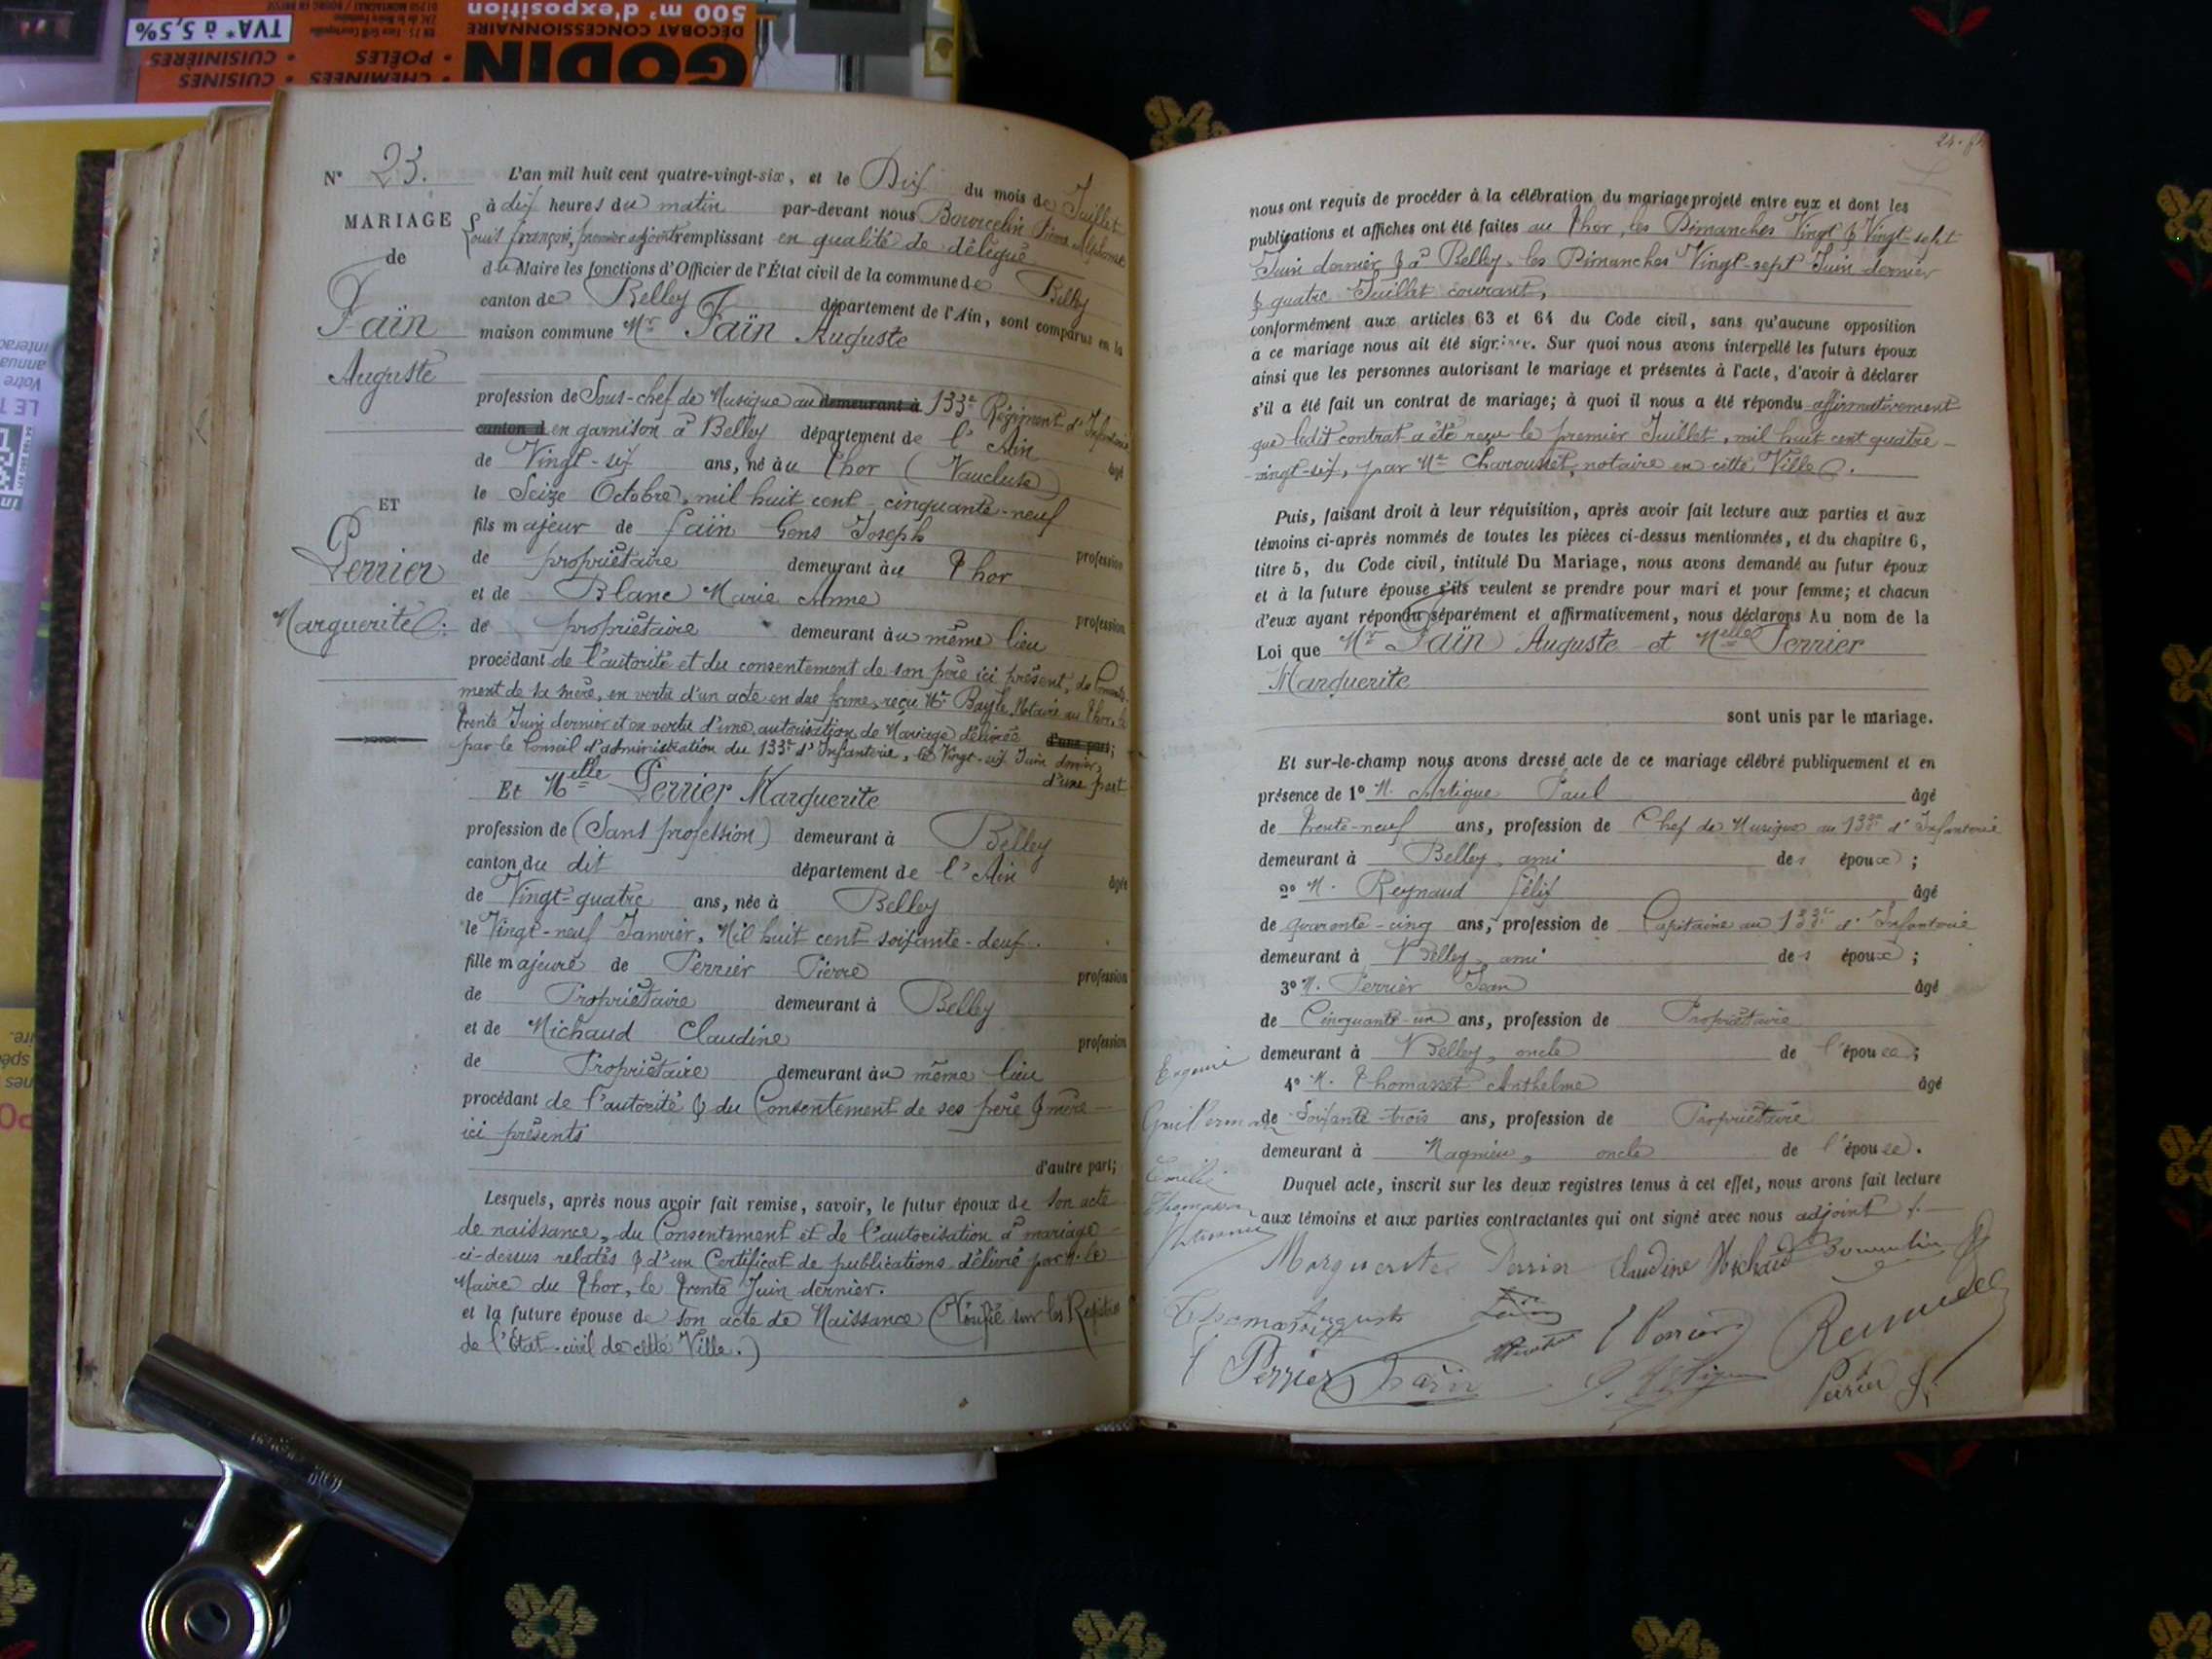 GODIN
DÉCOBAT CONCESSIONNAIRE
500 m² d'exposition
• CHEMINÉES • CUISINES
• POÊLES • CUISINIÈRES
TVA* à 5,5%
N° 23.
MARIAGE
de
Faïn
Auguste
ET
Perrier
Marguerite
L'an mil huit cent quatre-vingt-six, et le Dix du mois de Juillet
à dix heures du matin par-devant nous Bourcelin Pierre Alphonse
Louis françois, premier adjoint remplissant en qualité de délégué
du Maire les fonctions d'Officier de l'État civil de la commune de Belley
canton de Belley département de l'Ain, sont comparus en la
maison commune Mr Faïn Auguste
profession de Sous-chef de Musique au demeurant à 133e Régiment d'Infanterie
canton d en garnison à Belley département de l'Ain âgé
de Vingt-six ans, né au Thor (Vaucluse)
le Seize Octobre, mil huit cent-cinquante-neuf
fils majeur de faïn Gens Joseph profession
de propriétaire demeurant au Thor
et de Blanc Marie Anne profession
de propriétaire demeurant au même lieu
procédant de l'autorité et du consentement de son père ici présent, du Consente-
ment de sa mère, en vertu d'un acte en due forme, reçu Me Bayle, Notaire au Thor, le
trente Juin dernier et en vertu d'une autorisation de Mariage délivrée d'une part;
par le Conseil d'administration du 133e d'Infanterie, le Vingt-six Juin dernier,
d'une part
Et Melle Perrier Marguerite
profession de (Sans profession) demeurant à Belley
canton du dit département de l'Ain âgée
de Vingt-quatre ans, née à Belley
le Vingt-neuf Janvier, Mil huit cent soixante-deux.
fille majeure de Perrier Pierre profession
de Propriétaire demeurant à Belley
et de Michaud Claudine profession
de Propriétaire demeurant au même lieu
procédant de l'autorité & du Consentement de ses père & mère
ici présents
d'autre part;
Lesquels, après nous avoir fait remise, savoir, le futur époux de son acte
de naissance, du Consentement et de l'autorisation à mariage
ci-dessus relatés & d'un Certificat de publications délivré par Mr le
Maire du Thor, le trente Juin dernier.
et la future épouse de son acte de Naissance (Vérifié sur les Registres
de l'État-civil de cette Ville.)
nous ont requis de procéder à la célébration du mariage projeté entre eux et dont les
publications et affiches ont été faites au Thor, les Dimanches Vingt & Vingt-sept
Juin dernier & à Belley, les Dimanches Vingt-sept Juin dernier
& quatre Juillet courant,
conformément aux articles 63 et 64 du Code civil, sans qu'aucune opposition
à ce mariage nous ait été signifiée. Sur quoi nous avons interpellé les futurs époux
ainsi que les personnes autorisant le mariage et présentes à l'acte, d'avoir à déclarer
s'il a été fait un contrat de mariage; à quoi il nous a été répondu affirmativement
que ledit contrat a été reçu le premier Juillet, mil huit cent quatre-
-vingt-six, par Me Charousset, notaire en cette Ville.
Puis, faisant droit à leur réquisition, après avoir fait lecture aux parties et aux
témoins ci-après nommés de toutes les pièces ci-dessus mentionnées, et du chapitre 6,
titre 5, du Code civil, intitulé Du Mariage, nous avons demandé au futur époux
et à la future épouse s'ils veulent se prendre pour mari et pour femme; et chacun
d'eux ayant répondu séparément et affirmativement, nous déclarons Au nom de la
Loi que Mr Faïn Auguste et Melle Perrier
Marguerite
sont unis par le mariage.
Et sur-le-champ nous avons dressé acte de ce mariage célébré publiquement et en
présence de 1° M. Artigue Paul âgé
de trente-neuf ans, profession de Chef de Musique au 133e d'Infanterie
demeurant à Belley, ami des époux;
2° M. Reynaud félix âgé
de quarante-cinq ans, profession de Capitaine au 133e d'Infanterie
demeurant à Belley, ami des époux;
3° M. Perrier Jean âgé
de Cinquante-un ans, profession de Propriétaire
demeurant à Belley, oncle de l'épouse;
4° M. Thomasset Anthelme âgé
de Soixante-trois ans, profession de Propriétaire
demeurant à Magnieu, oncle de l'épouse.
Duquel acte, inscrit sur les deux registres tenus à cet effet, nous avons fait lecture
aux témoins et aux parties contractantes qui ont signé avec nous adjoint
Marguerite Perrier Claudine Michaud Bourcelin
Thomasset Auguste Faïn Perrier Reynaud
Perrier Faïn P. Artigue Perrier